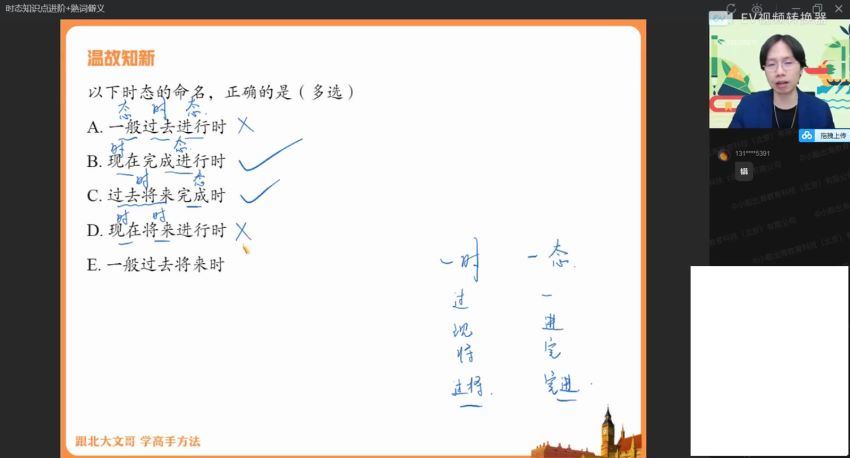 时态知识点进阶+熟词僻义
EV视频转换器
温故知新
以下时态的命名，正确的是（多选）
态 时 态
A. 一般过去进行时 ×
时 态
B. 现在完成进行时 ✓
时 态
C. 过去将来完成时 ✓
时 时
D. 现在将来进行时 ×
E. 一般过去将来时
一时 一态
过 一
现 进
将 完
过将 完进
跟北大文哥 学高手方法
拖拽上传
131****5391